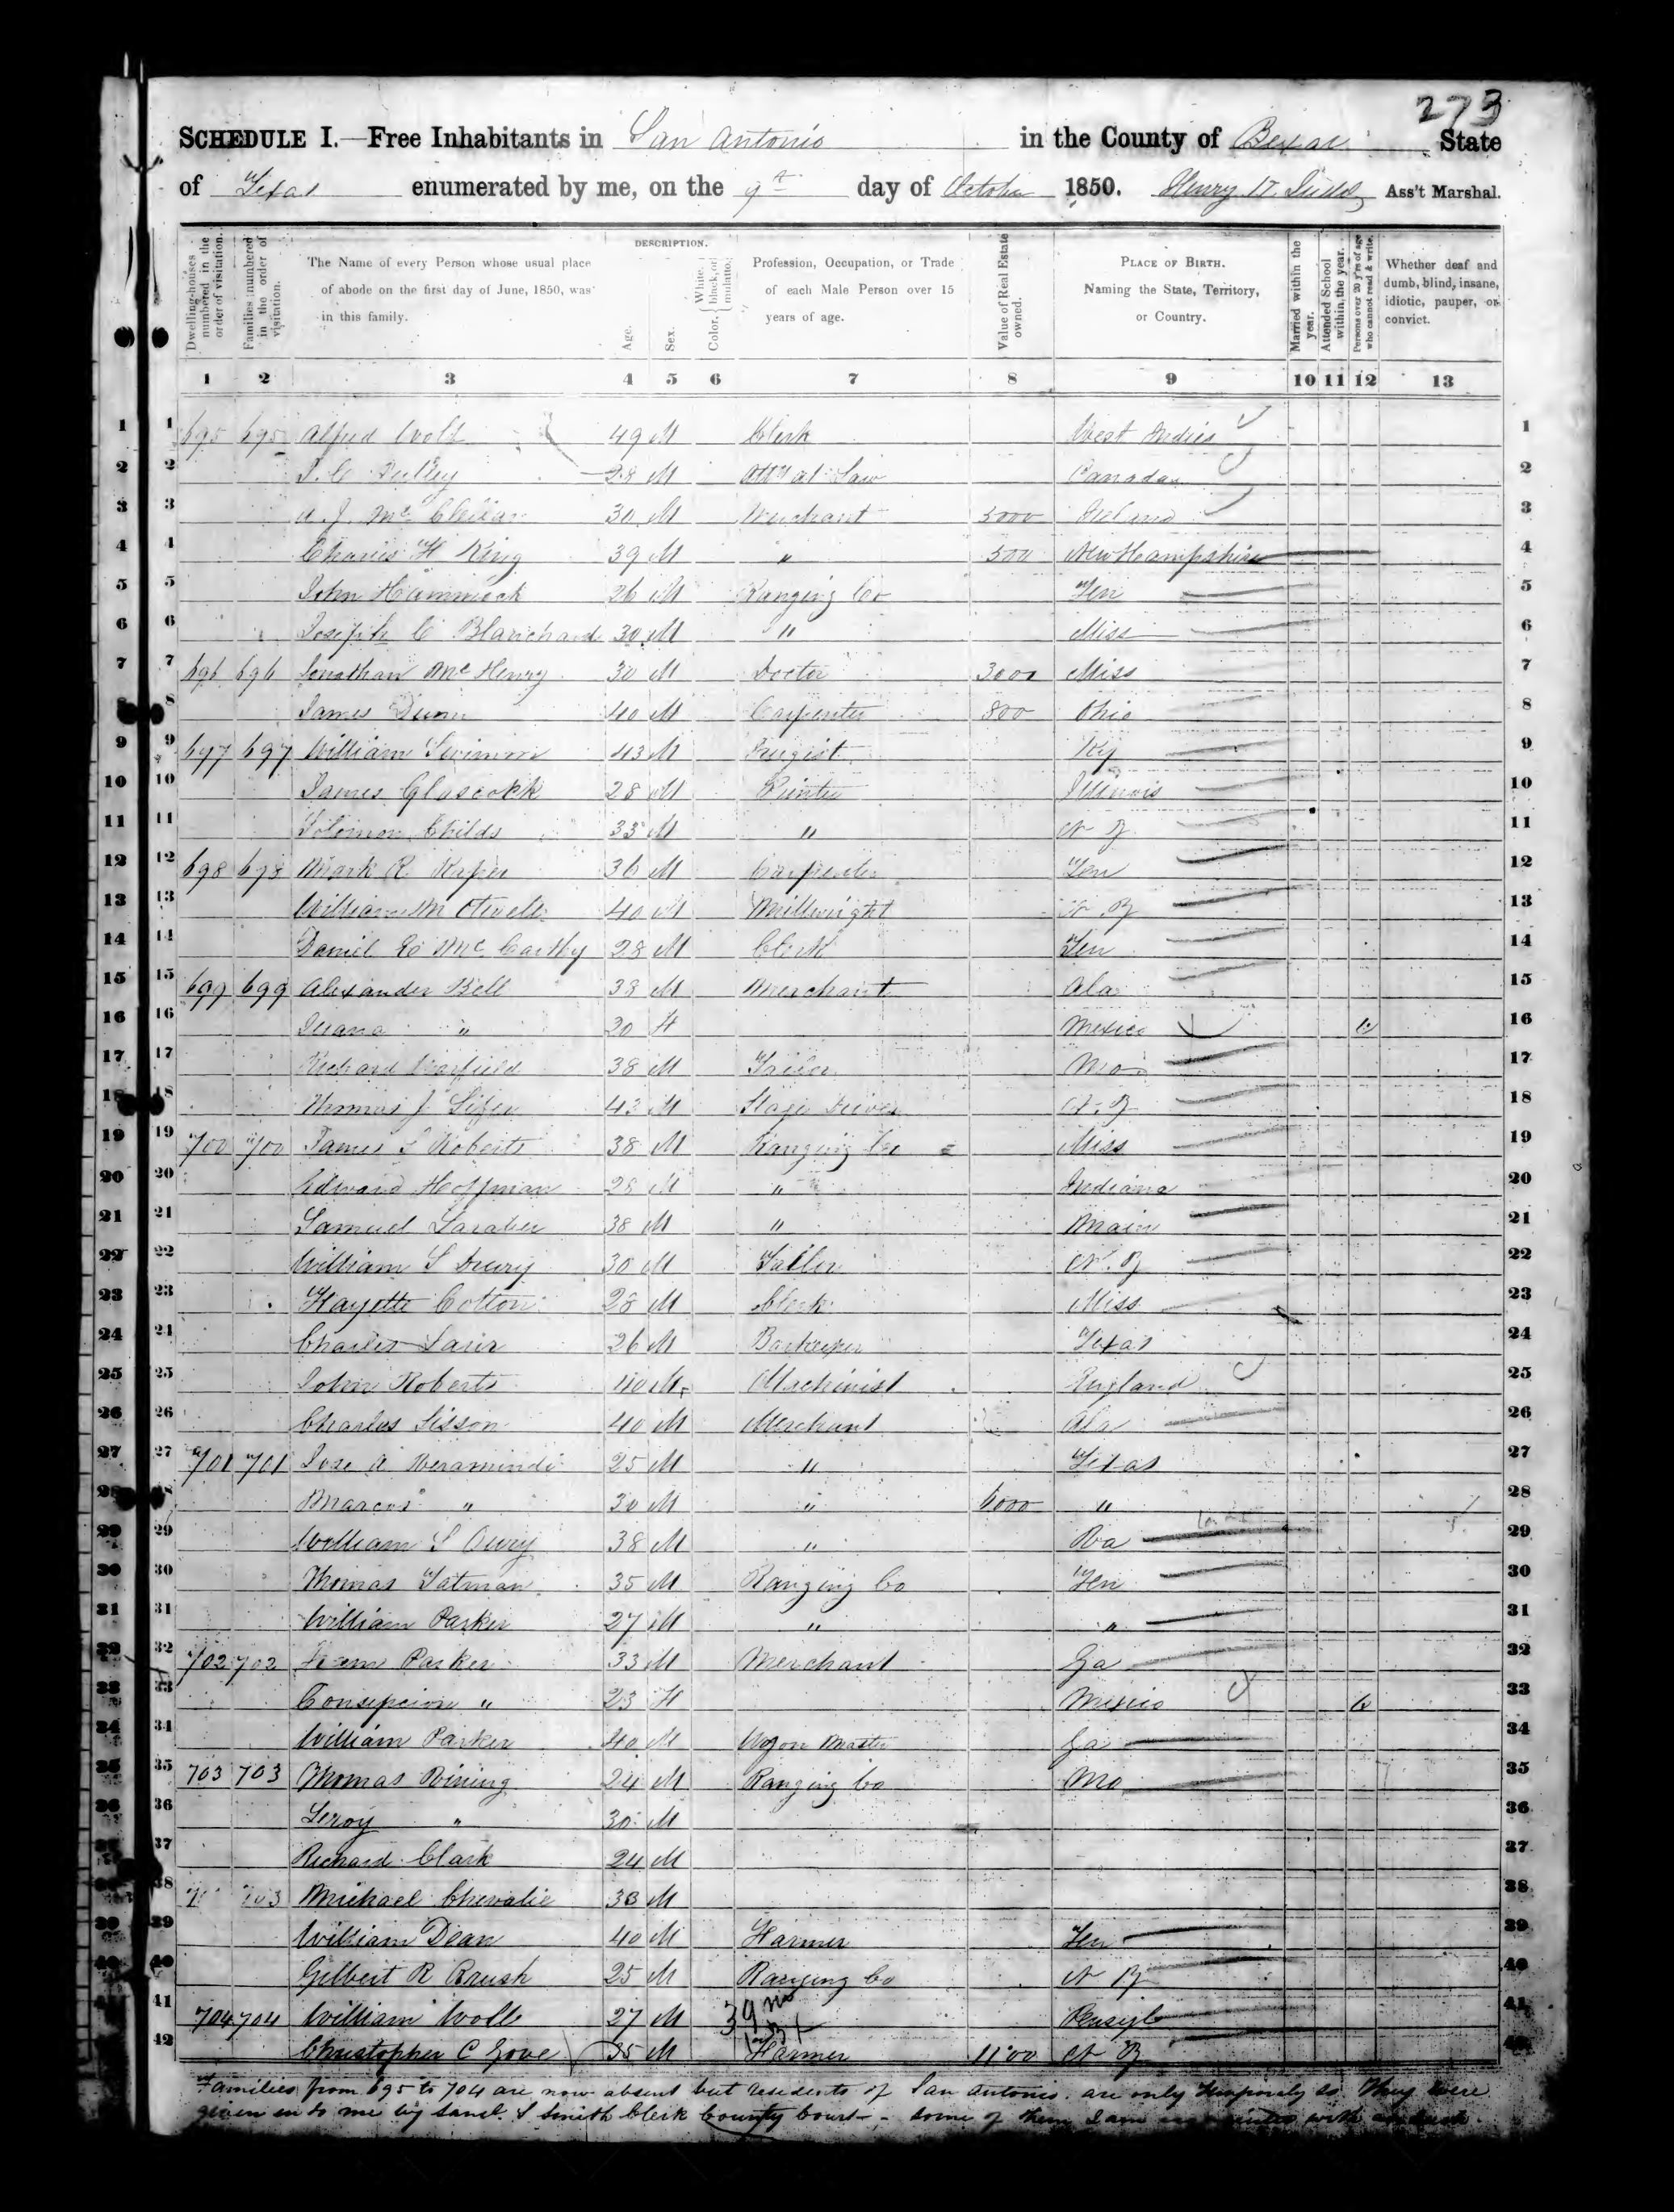 273
SCHEDULE I.—Free Inhabitants in San Antonio in the County of Bexar State
of Texas enumerated by me, on the 9th day of October 1850. Henry Ass't Marshal.
Dwelling-houses numbered in the order of visitation.
Families numbered in the order of visitation.
The Name of every Person whose usual place of abode on the first day of June, 1850, was in this family.
DESCRIPTION.
Age.
Sex.
Color, White, black, or mulatto.
Profession, Occupation, or Trade of each Male Person over 15 years of age.
Value of Real Estate owned.
PLACE OF BIRTH. Naming the State, Territory, or Country.
Married within the year.
Attended School within the year.
Persons over 20 y'rs of age who cannot read & write.
Whether deaf and dumb, blind, insane, idiotic, pauper, or convict.
1 2 3 4 5 6 7 8 9 10 11 12 13
1 695 695 Alfred 49 M Clerk West Indies 1
2 28 M Atty at Law Canada 2
3 30 M Merchant 5000 Ireland 3
4 Charles H King 39 M " 500 New Hampshire 4
5 John Hammock 26 M Ranging Co Ten 5
6 Joseph C Blanchard 30 M " Miss 6
7 696 696 Jonathan Mc Henry 30 M Doctor 3000 Miss 7
8 James Dunn 40 M Carpenter 800 Ohio 8
9 697 697 William 43 M Ky 9
10 James Glascock 28 M Printer Illinois 10
11 Solomon Childs 35 M " N Y 11
12 698 698 Mark R 36 M Carpenter Ten 12
13 William M 40 M Millwright N Y 13
14 Daniel C Mc Carthy 28 M Clerk Ten 14
15 699 699 Alexander Bell 38 M Merchant Ala 15
16 Juana " 20 F Mexico 16
17 Richard Warfield 38 M Mo 17
18 Thomas J 43 M Stage Driver N. Y 18
19 700 700 James Roberts 38 M Ranging Co Miss 19
20 Edward Hoffman 28 M " Indiana 20
21 Samuel 38 M " Main 21
22 William S 30 M N. Y 22
23 Fayette Cotton 28 M Clerk Miss 23
24 Charles 26 M Barkeeper Texas 24
25 John Roberts 40 M Machinist England 25
26 Charles Sisson 40 M Merchant Ala 26
27 701 701 Jose A Veramindi 25 M " Texas 27
28 Marcos " 30 M " 6000 " 28
29 William S Oury 38 M " Va 29
30 Thomas Tatman 35 M Ranging Co Ten 30
31 William Parker 27 M " " 31
32 702 702 Parker 33 M Merchant Ga 32
33 Consepcion " 23 F Mexico 33
34 William Parker 40 M Wgon Master Ga 34
35 703 703 Thomas 24 M Ranging Co Mo 35
36 Leroy " 30 M 36
37 Richard Clark 24 M 37
38 703 Michael Chevalie 33 M 38
39 William Dean 40 M Farmer Ten 39
40 Gilbert R Brush 25 M Ranging Co N Y 40
41 704 704 William 27 M 41
42 Christopher C Gove 35 M Farmer 1100 N Y 42
Families from 695 to 704 are now absent but residents of San Antonio. are only temporaly so. They were
given in to me by Saml. S Smith Clerk County Court — some of them I am with